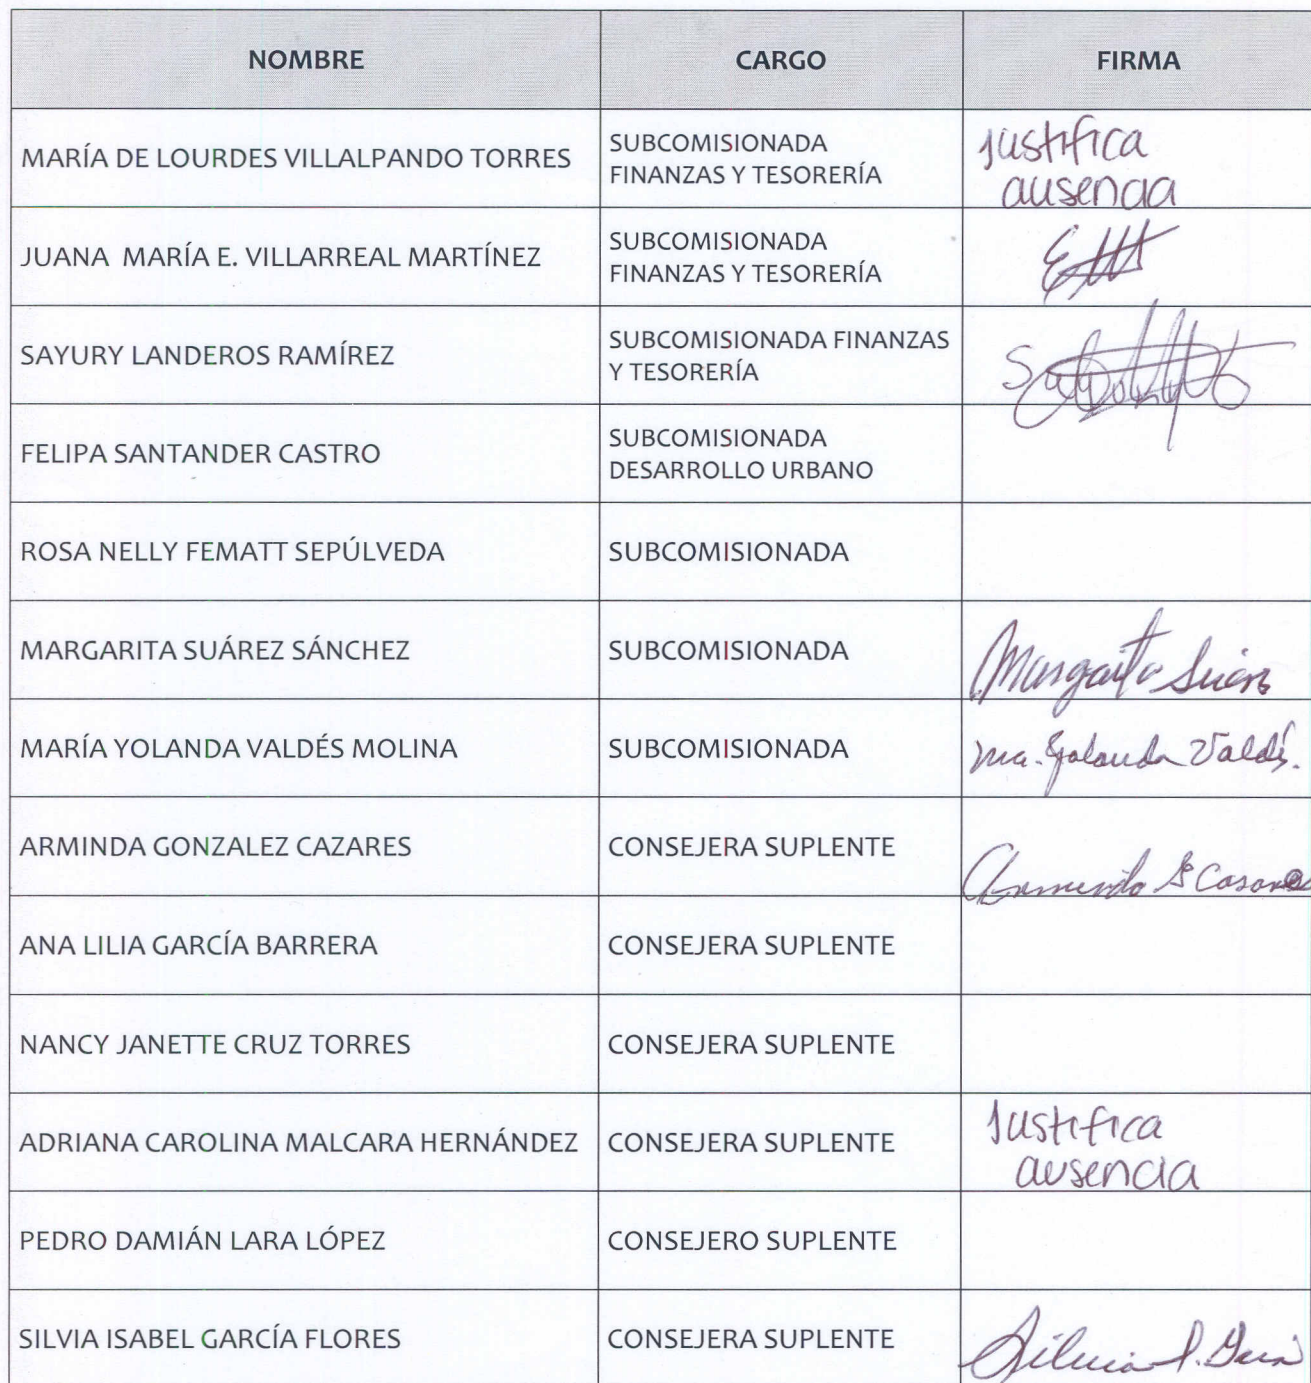 NOMBRE CARGO FIRMA
MARÍA DE LOURDES VILLALPANDO TORRES
SUBCOMISIONADA
FINANZAS Y TESORERÍA
Justifica
ausencia
JUANA MARÍA E. VILLARREAL MARTÍNEZ
SUBCOMISIONADA
FINANZAS Y TESORERÍA
SAYURY LANDEROS RAMÍREZ
SUBCOMISIONADA FINANZAS
Y TESORERÍA
FELIPA SANTANDER CASTRO
SUBCOMISIONADA
DESARROLLO URBANO
ROSA NELLY FEMATT SEPÚLVEDA
SUBCOMISIONADA
MARGARITA SUÁREZ SÁNCHEZ
SUBCOMISIONADA
Margarita
MARÍA YOLANDA VALDÉS MOLINA
SUBCOMISIONADA
Ma. Yolanda Valdés.
ARMINDA GONZALEZ CAZARES
CONSEJERA SUPLENTE
ANA LILIA GARCÍA BARRERA
CONSEJERA SUPLENTE
NANCY JANETTE CRUZ TORRES
CONSEJERA SUPLENTE
ADRIANA CAROLINA MALCARA HERNÁNDEZ
CONSEJERA SUPLENTE
Justifica
ausencia
PEDRO DAMIÁN LARA LÓPEZ
CONSEJERO SUPLENTE
SILVIA ISABEL GARCÍA FLORES
CONSEJERA SUPLENTE
Silvia I.